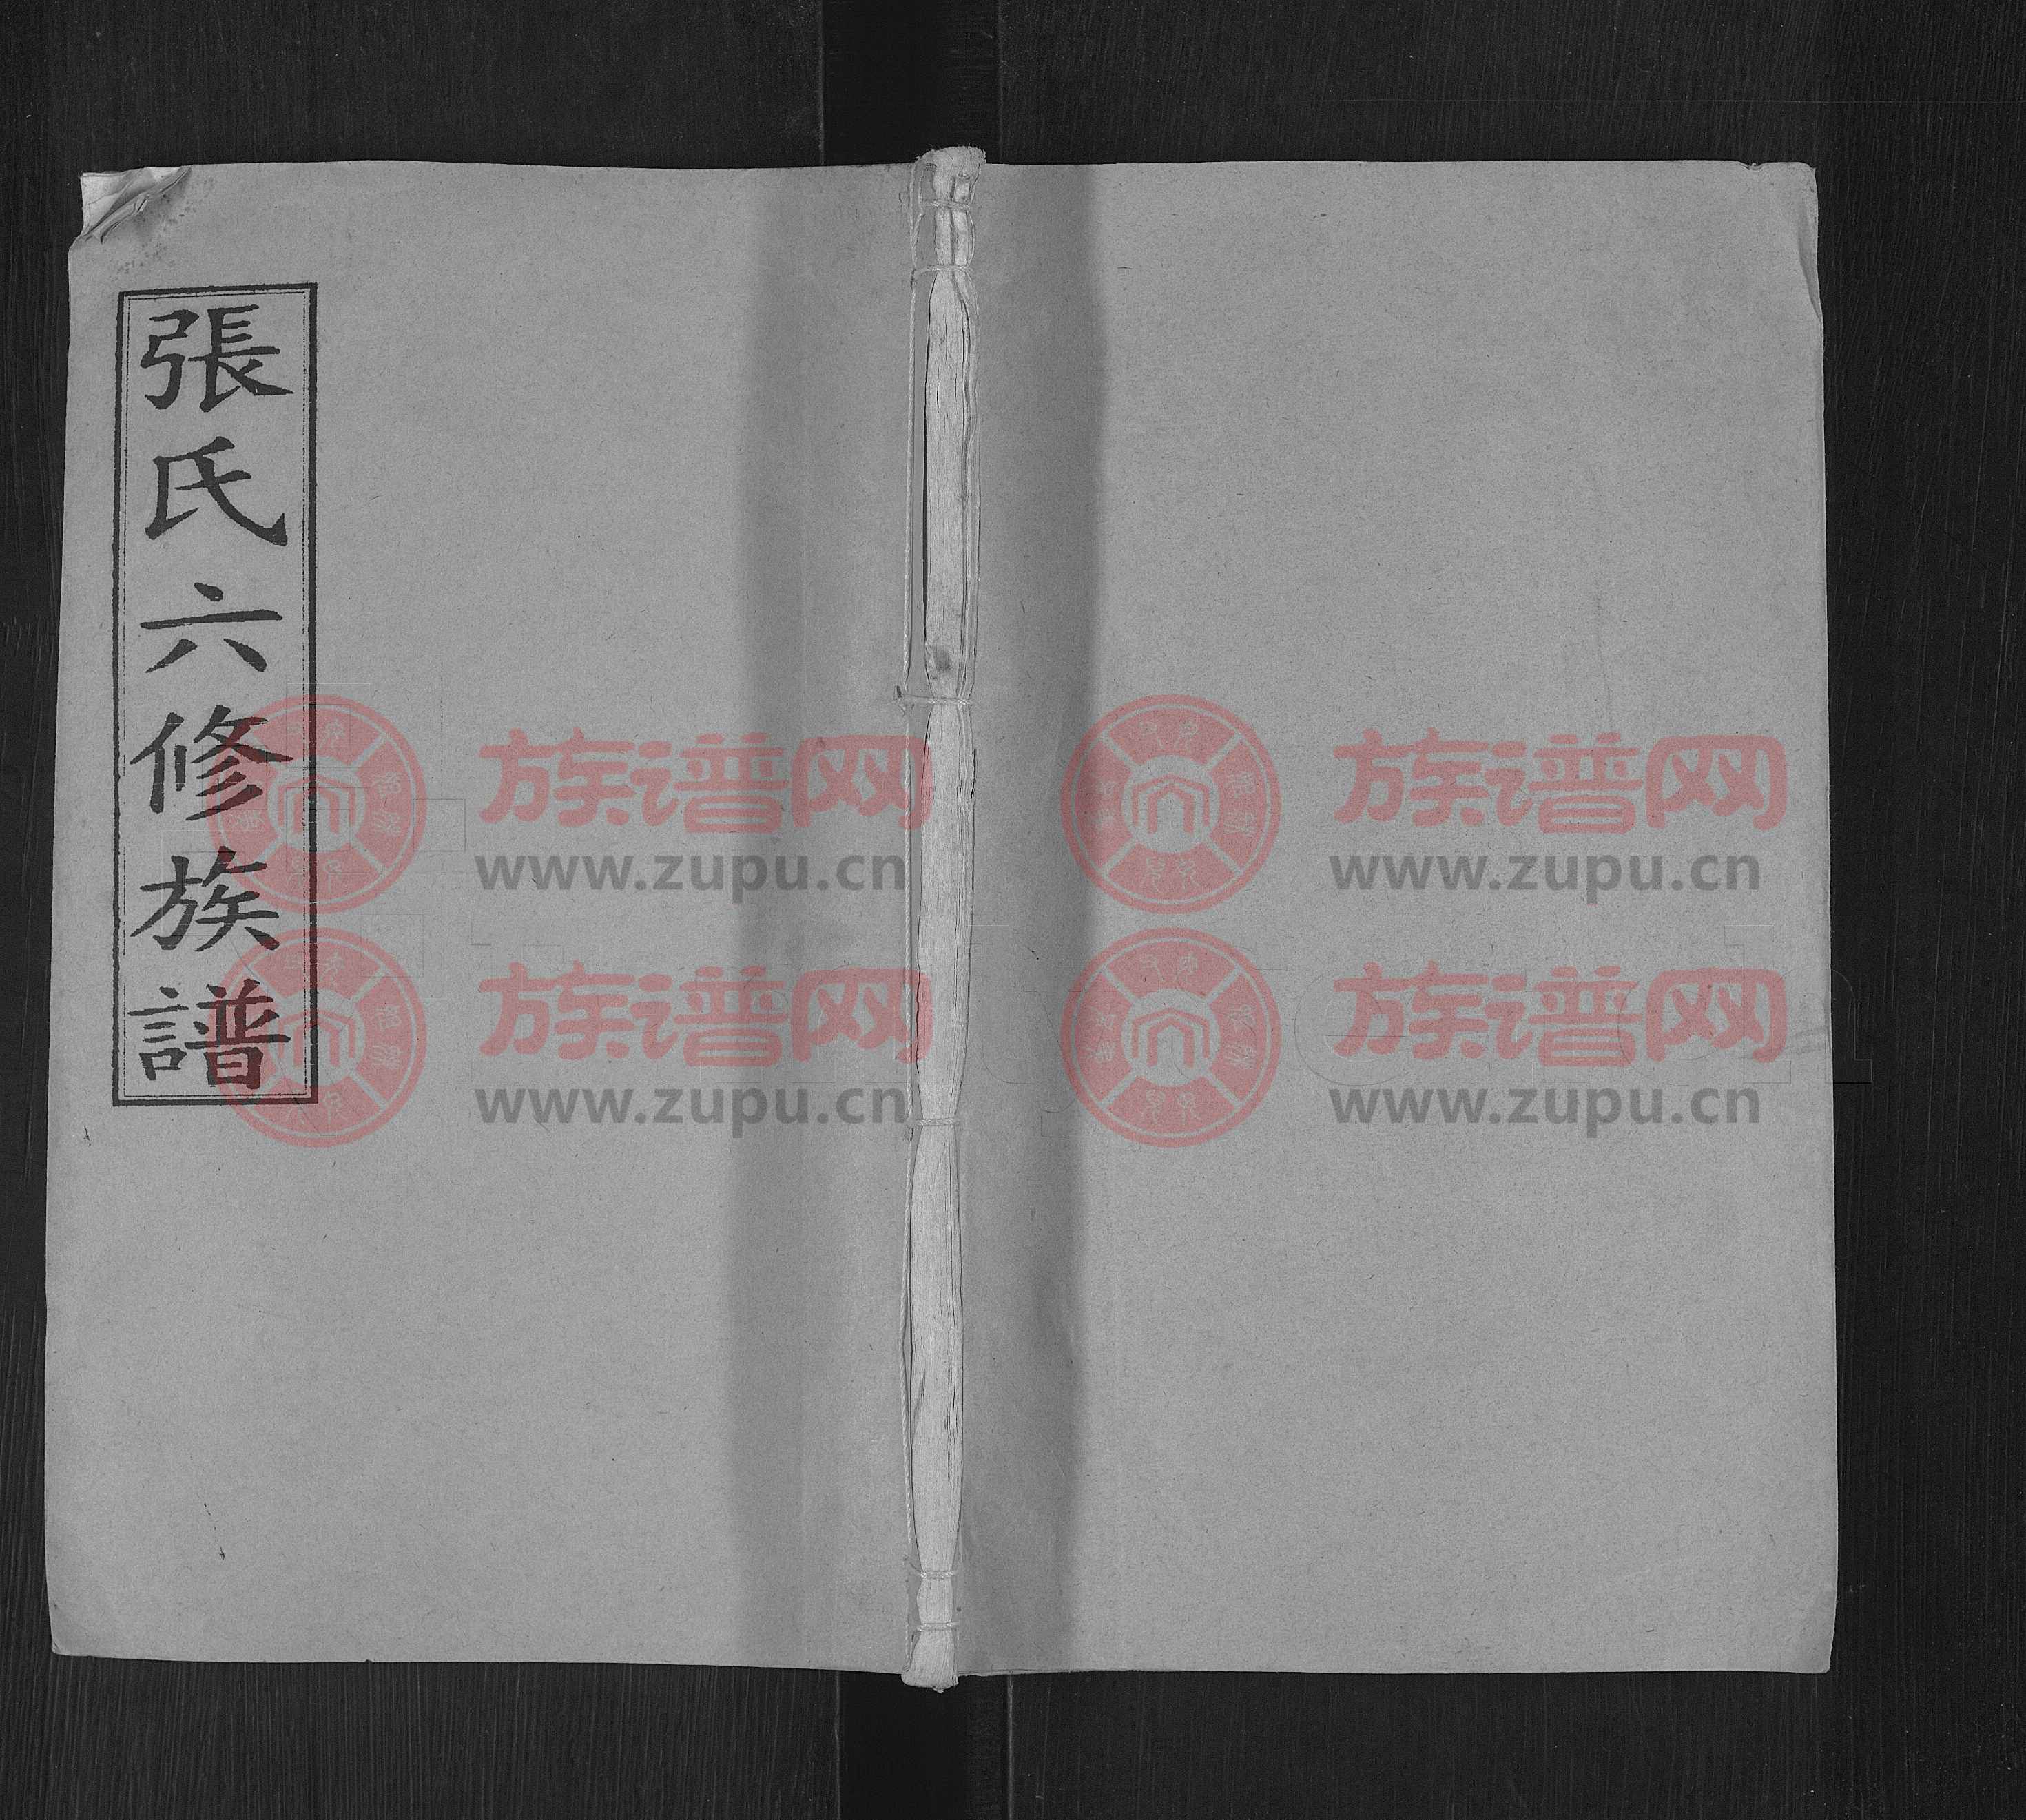 張氏六修族譜
族谱网
www.zupu.cn
族谱网
www.zupu.cn
族谱网
www.zupu.cn
族谱网
www.zupu.cn